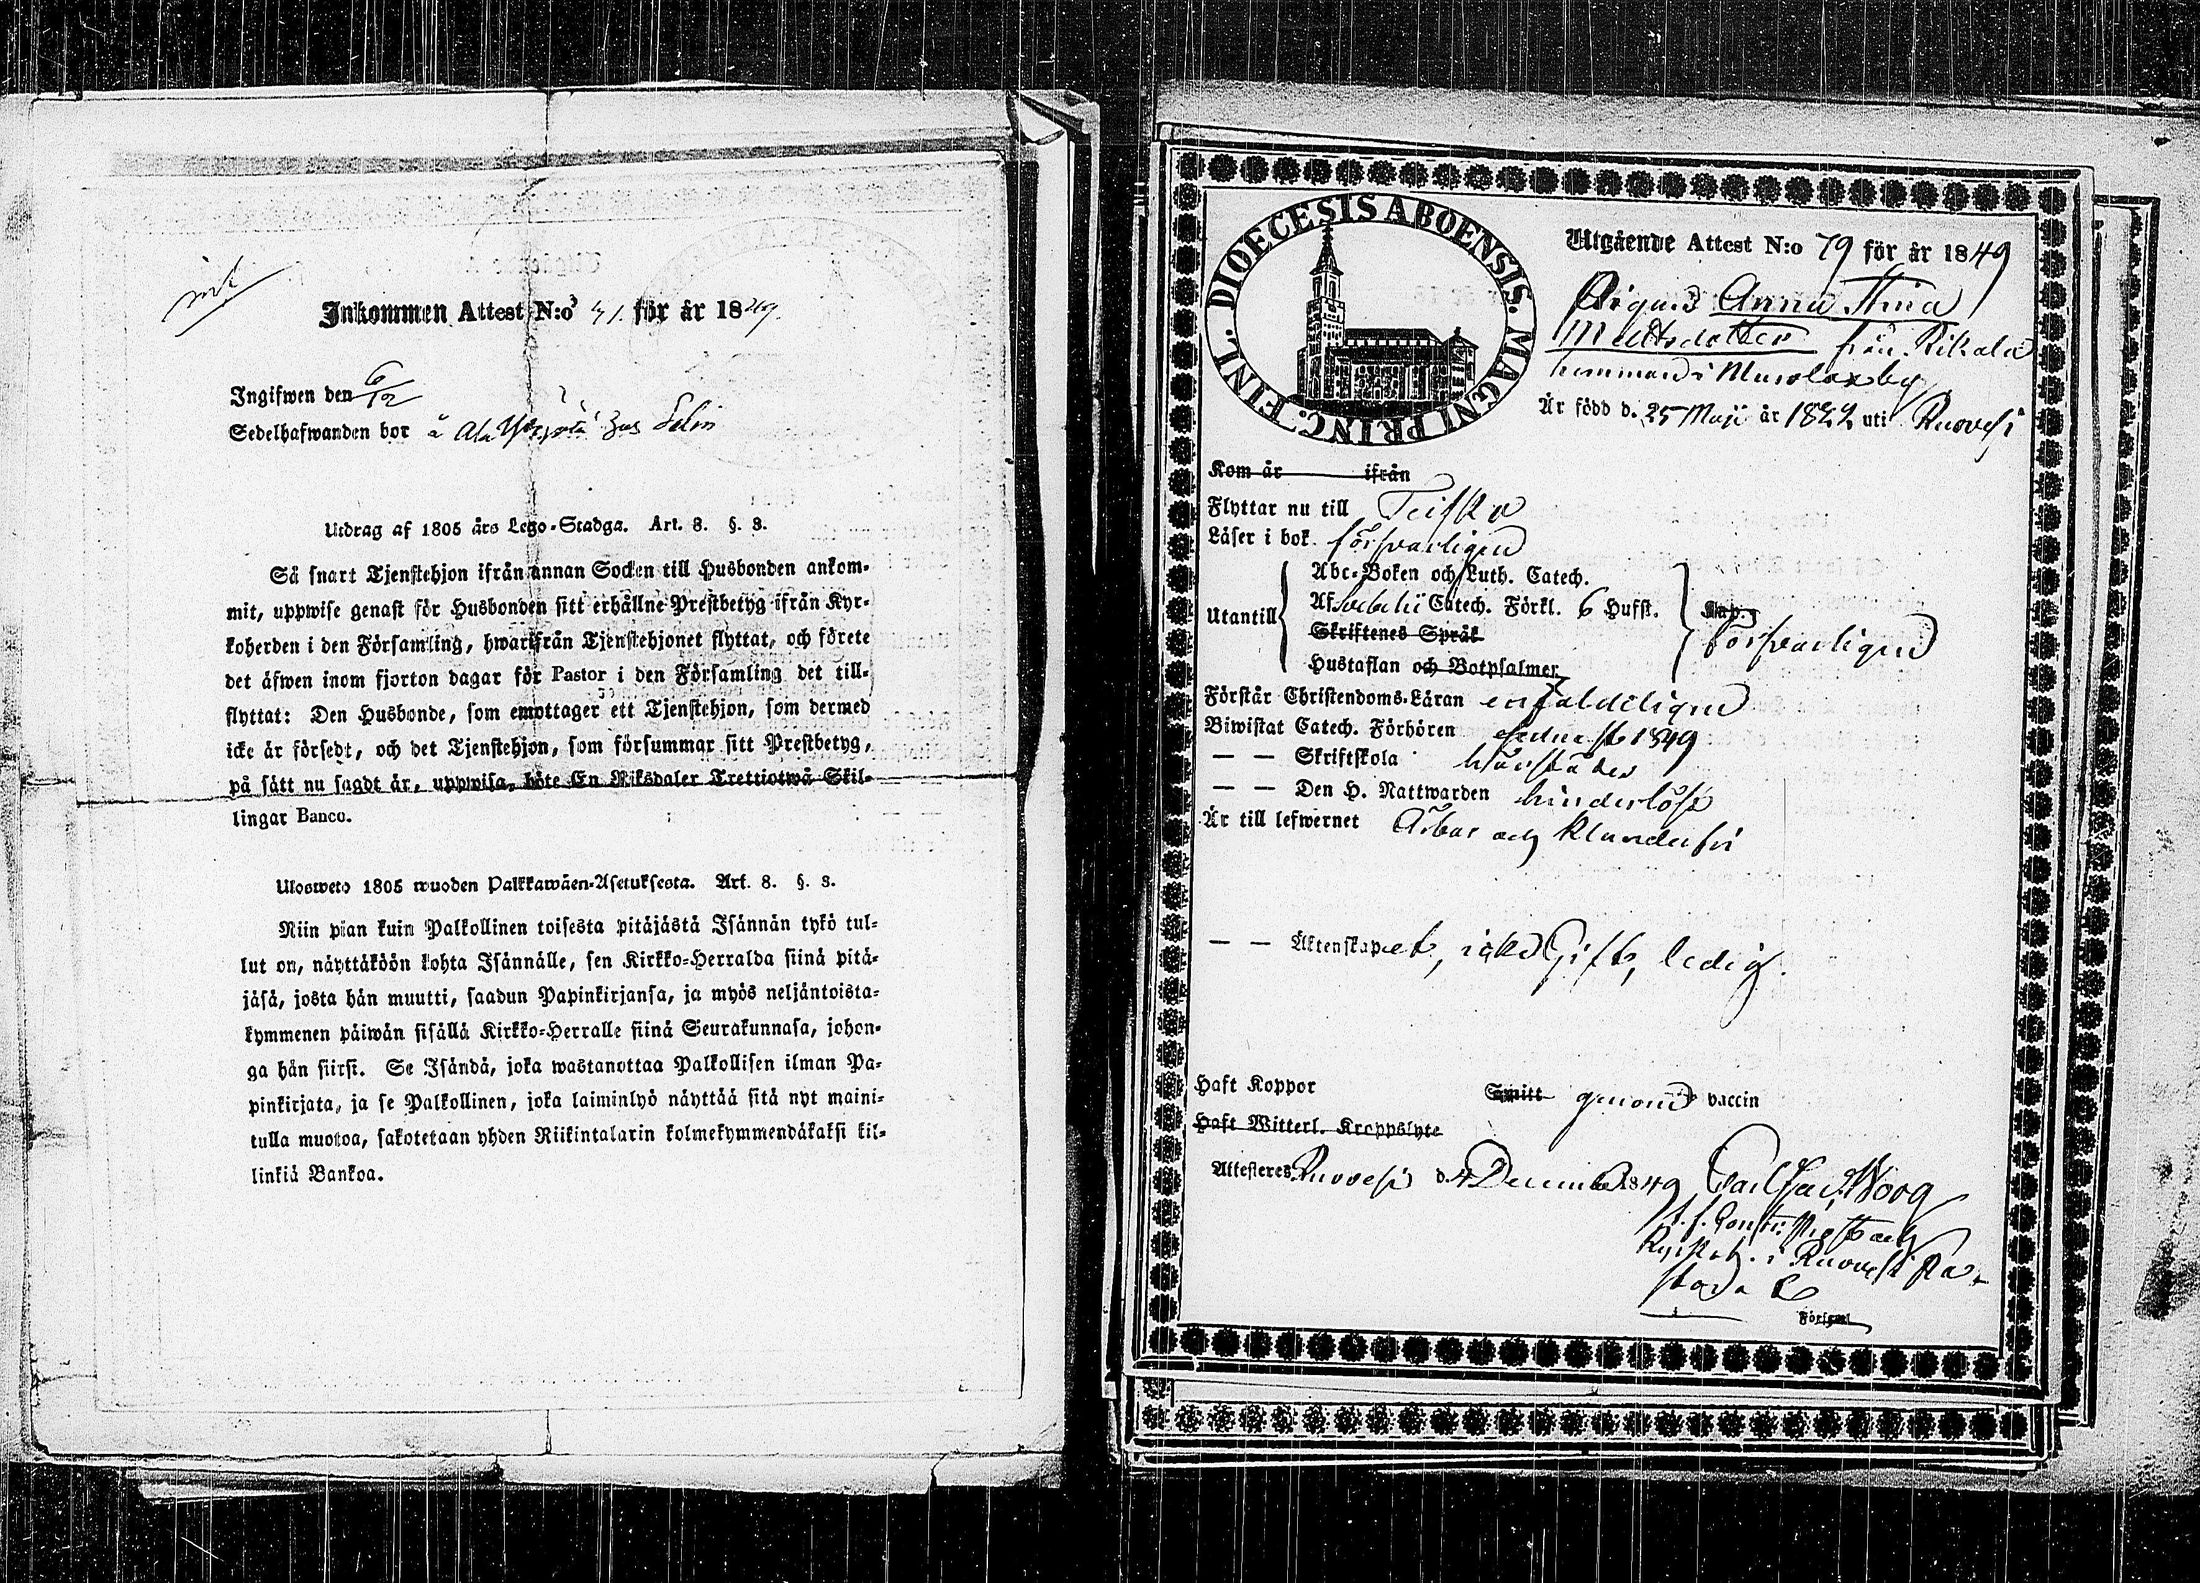 Inkommen Attest N:o 41. för år 1849.
Ingifwen den 6/12
Sedelhafwanden bor å Ala
Utdrag af 1805 års Lego-Stadga. Art. 8. §. 3.
Så snart Tjenstehjon ifrån annan Socken till Husbonden ankom-
mit, uppwise genast för Husbonden sitt erhållne Prestbetyg ifrån Kyr-
koherden i den Församling, hwarifrån Tjenstehjonet flyttat, och förete
det äfwen inom fjorton dagar för Pastor i den Församling det till-
flyttat: Den Husbonde, som emottager ett Tjenstehjon, som dermed
icke är försedt, och det Tjenstehjon, som försummar sitt Prestbetyg,
på sätt nu sagdt är, uppwisa, böte En Riksdaler Trettiotwå Skil-
lingar Banco.
Ulosweto 1805 wuoden Palkkawäen-Asetuksesta. Art. 8. §. 3.
Niin pian kuin Palkollinen toisesta pitäjästä Isännän tykö tul-
lut on, näyttäköön kohta Isännälle, sen Kirkko-Herralda siinä pitä-
jäsä, josta hän muutti, saadun Papinkirjansa, ja myös neljäntoista-
kymmenen päiwän sisällä Kirkko-Herralle siinä Seurakunnasa, johon-
ga hän siirsi. Se Isändä, joka wastanottaa Palkollisen ilman Pa-
pinkirjata, ja se Palkollinen, joka laiminlyö näyttää sitä nyt maini-
tulla muotoa, sakotetaan yhden Riikintalarin kolmekymmendäkaksi kil-
linkiä Bankoa.
DIOECESIS ABOENSIS. MAGNI PRINC. FINL.
Utgående Attest N:o 79 för år 1849
Pigan Anna Stina
Mattsdotter från
hemman i Murolax by
Är född d. 25 Maji år 1822 uti Ruovesi
Kom år ifrån
Flyttar nu till Teisko
Läser i bok försvarligen
Utantill
Abc-Boken och Luth. Catech.
Af Svebelii Catech. Förkl. 6 Hufst.
Skriftenes Språk
Hustaflan och Botpsalmer
försvarligen
Förstår Christendoms-Läran enfaldeligen
Biwistat Catech. Förhören senast 1849
— — Skriftskola
— — Den H. Nattwarden hinderlös
Är till lefwernet Ärbar och klanderfri
— — Äktenskapet, icke Gift, ledig.
Haft Koppor Smitt genom vaccin
Haft Witterl. Kroppslyte
Attesteras Ruovesi d. 4 December 1849 Carl Woog
i Ruovesi
Församl.